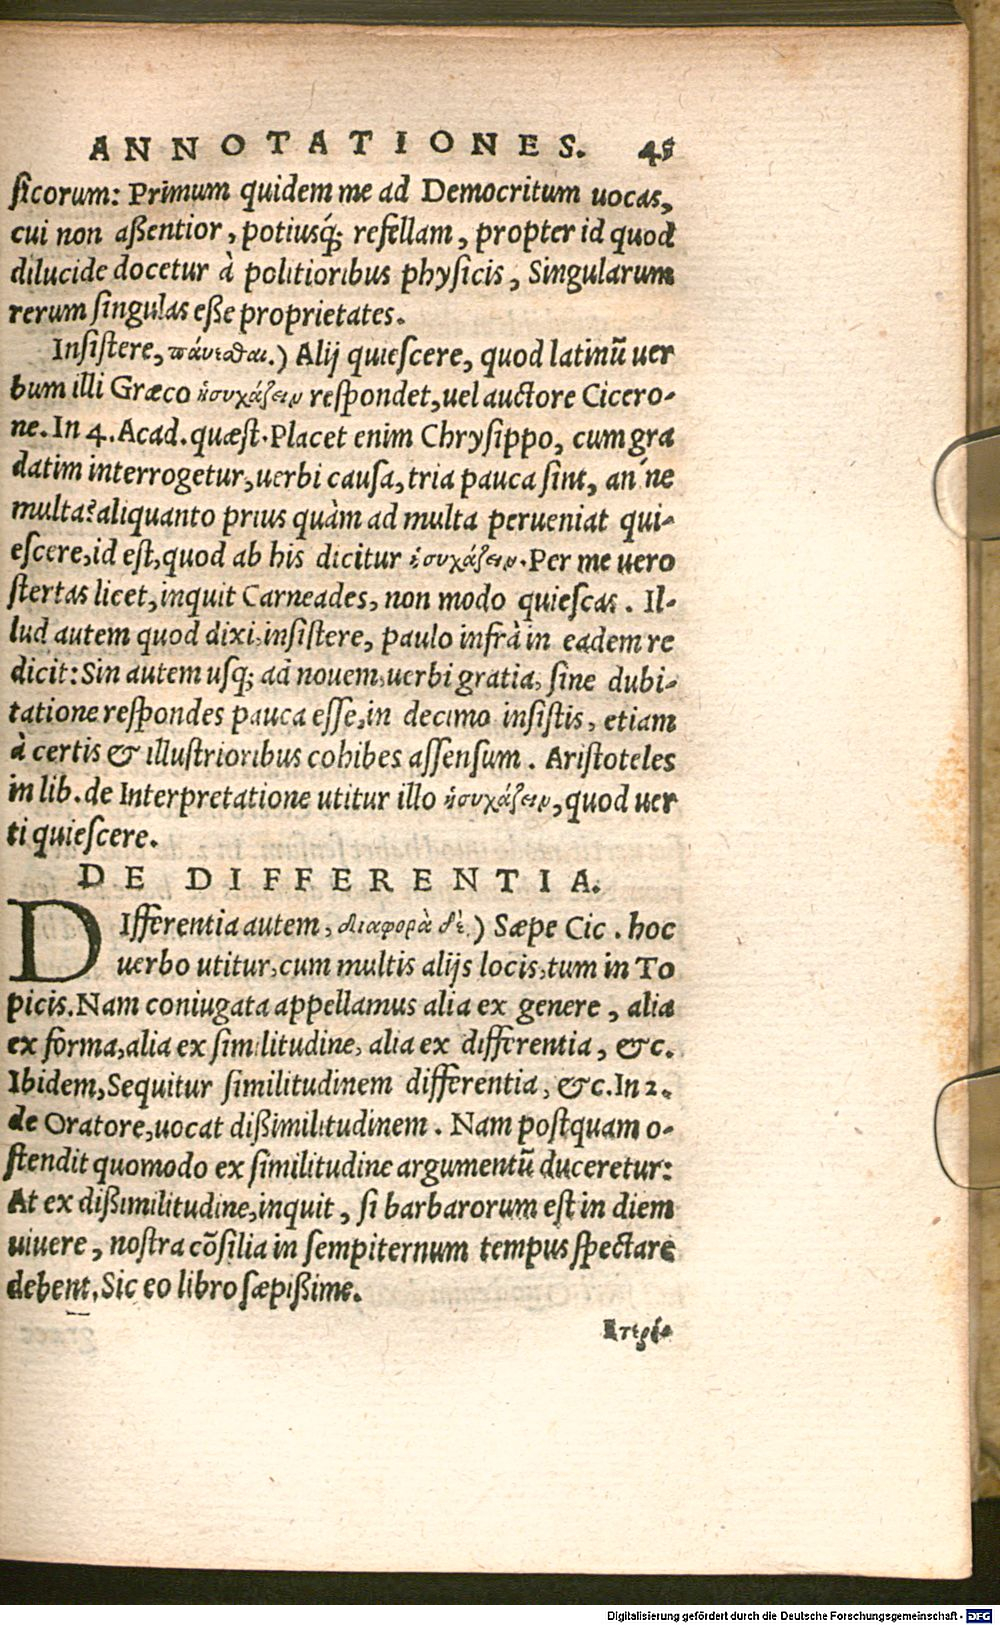 ANNOTATIONES. 45
sicorum: Primum quidem me ad Democritum uocas,
cui non aßentior, potiusq́; refellam, propter id quod
dilucide docetur à politioribus physicis, Singularum
rerum singulas eße proprietates.
Insistere, παύεσθαι.) Alij quiescere, quod latinũ uer
bum illi Græco ἡσυχάζειν respondet, uel auctore Cicero-
ne. In 4. Acad. quæst. Placet enim Chrysippo, cum gra
datim interrogetur, uerbi causa, tria pauca sint, an'ne
multa? aliquanto prius quàm ad multa perueniat qui-
escere, id est, quod ab his dicitur ἡσυχάζειν. Per me uero
stertas licet, inquit Carneades, non modo quiescas. Il-
lud autem quod dixi, insistere, paulo infrà in eadem re
dicit: Sin autem usq; ad nouem, uerbi gratia, sine dubi-
tatione respondes pauca esse, in decimo insistis, etiam
à certis & illustrioribus cohibes assensum. Aristoteles
in lib. de Interpretatione utitur illo ἡσυχάζειν, quod uer
ti quiescere.
DE DIFFERENTIA.
DIfferentia autem, διαφορὰ δὲ.) Sæpe Cic. hoc
uerbo utitur, cum multis alijs locis, tum in To
picis. Nam coniugata appellamus alia ex genere, alia
ex forma, alia ex similitudine, alia ex differentia, &c.
Ibidem, Sequitur similitudinem differentia, &c. In 2.
de Oratore, uocat dißimilitudinem. Nam postquam o-
stendit quomodo ex similitudine argumentũ duceretur:
At ex dißimilitudine, inquit, si barbarorum est in diem
uiuere, nostra cõsilia in sempiternum tempus spectare
debent, Sic eo libro sæpißime.
Ετερό-
Digitalisierung gefördert durch die Deutsche Forschungsgemeinschaft - DFG